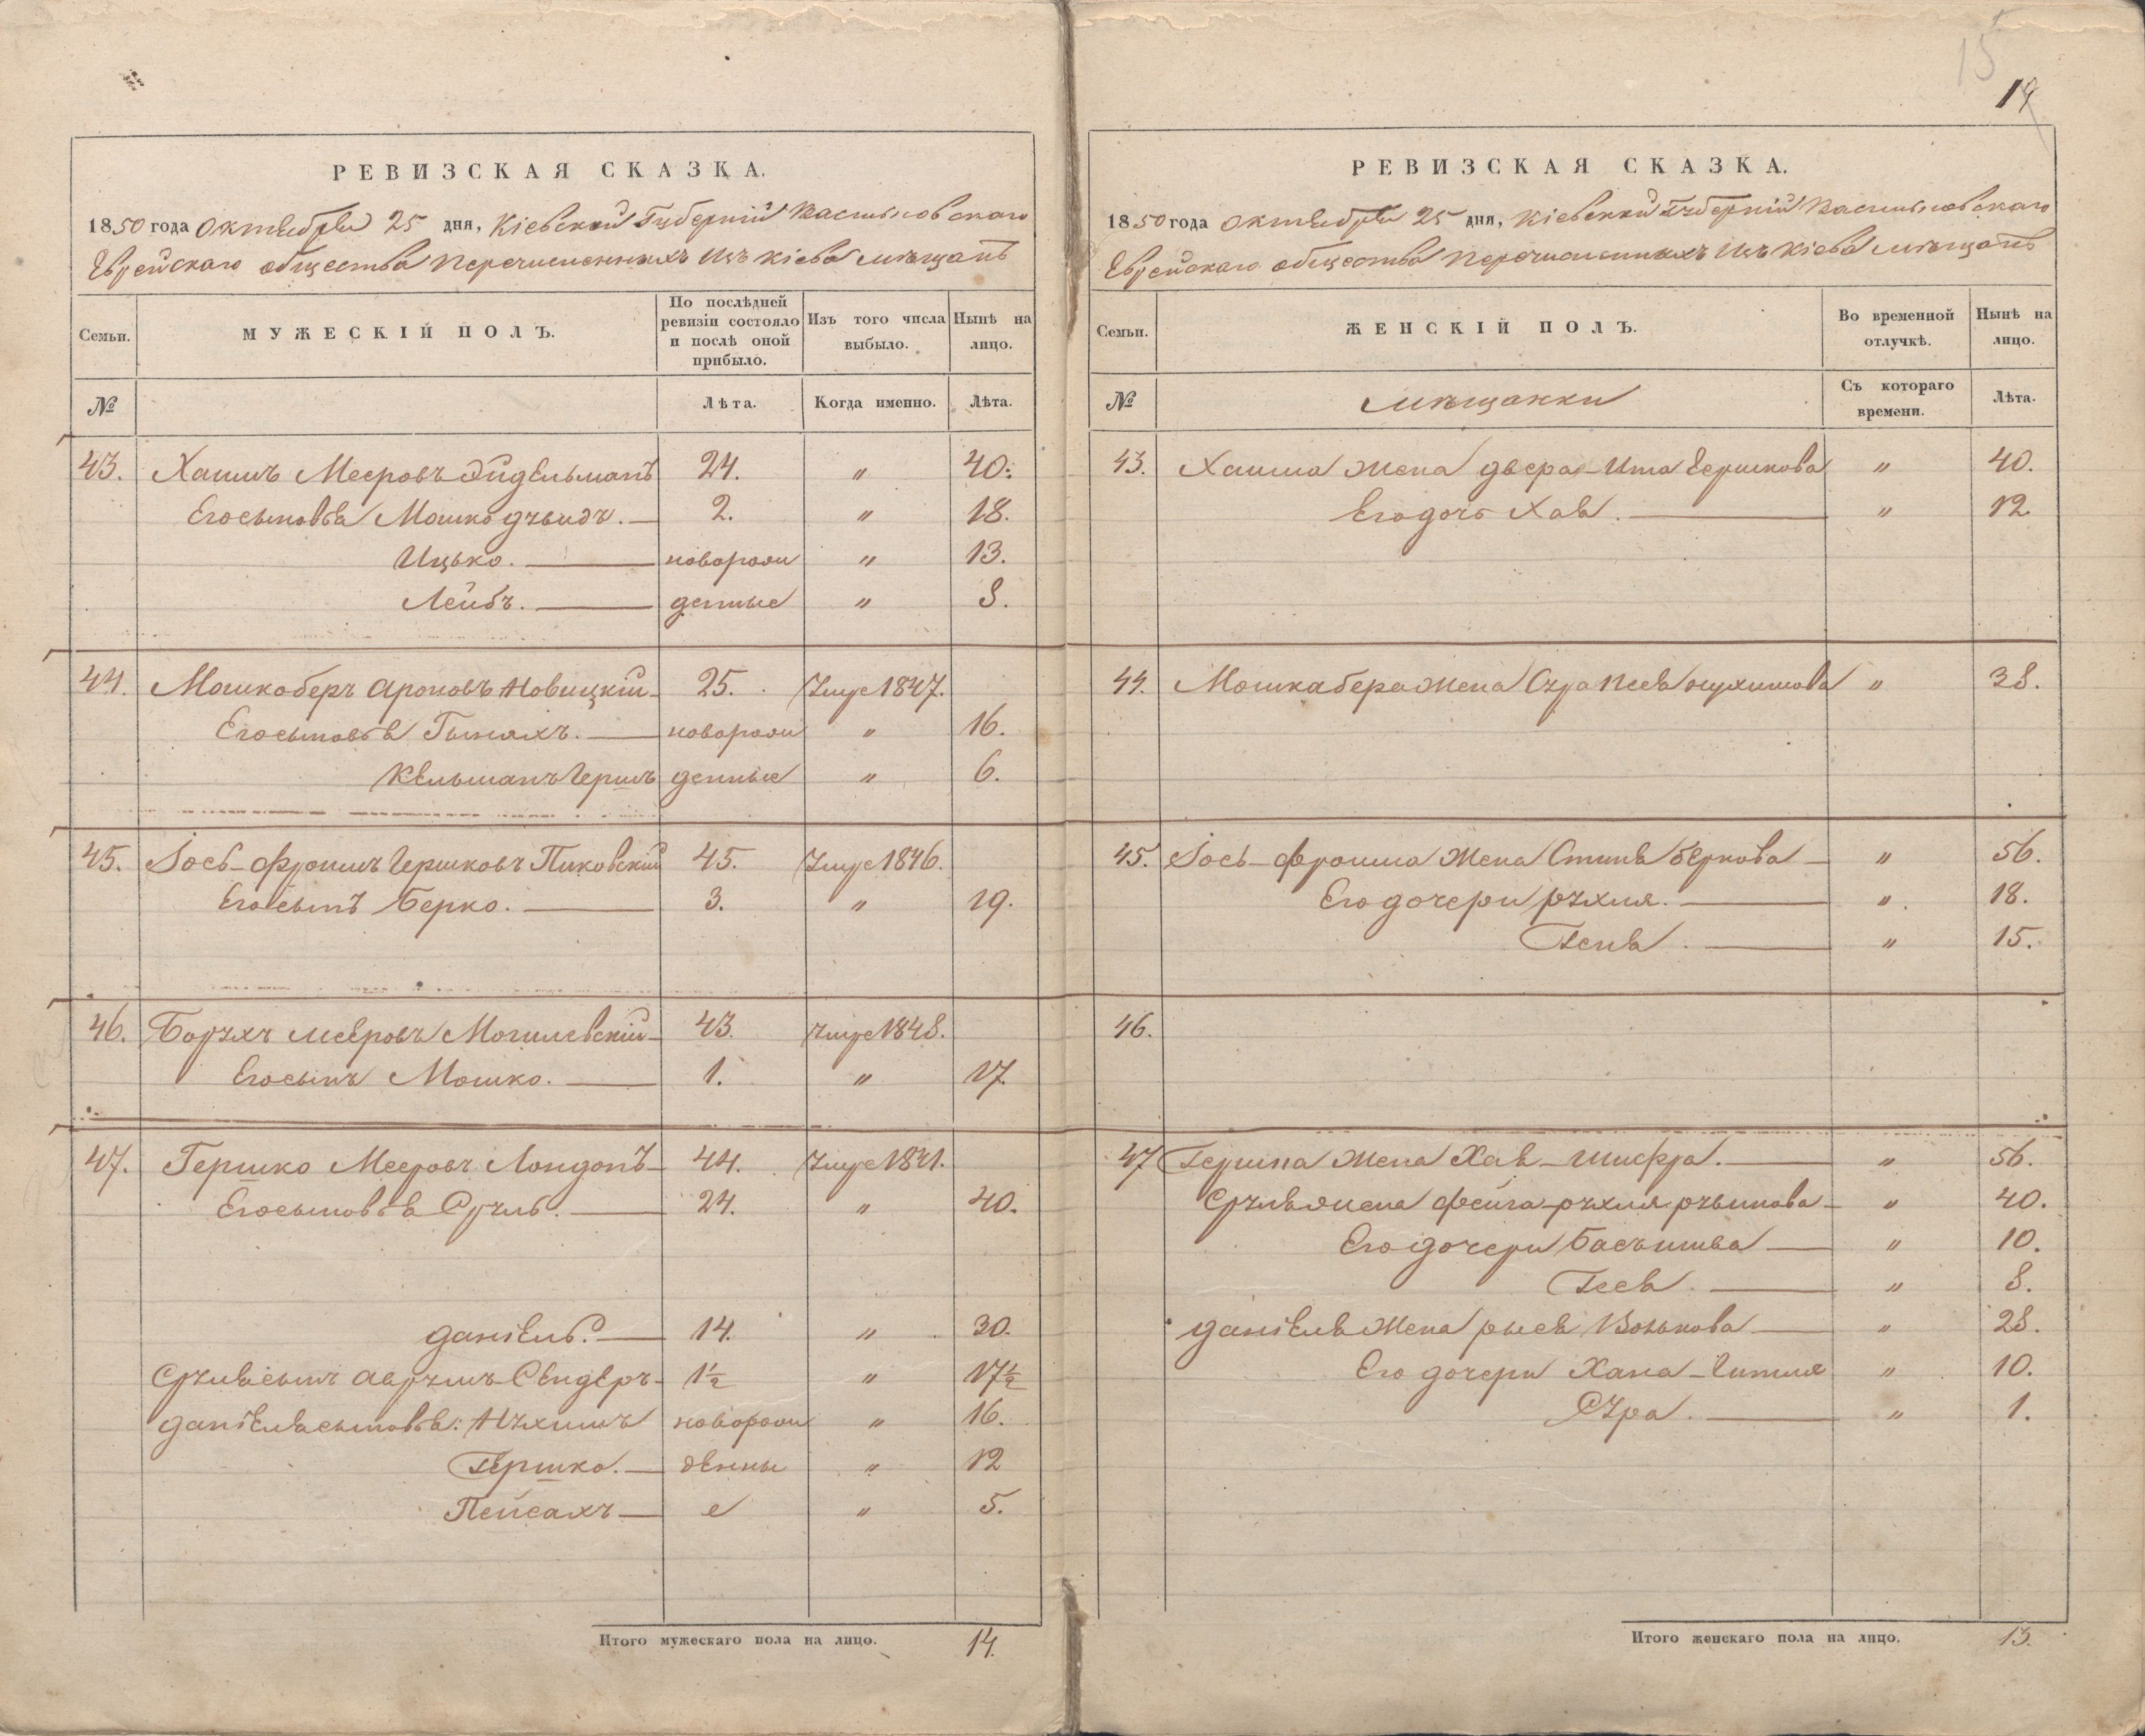 РЕВИЗСКАЯ СКАЗКА.
1850 года Октября 25 дня, Кіевской Губерніи Васильковскаго
Еврейскаго общества перечисленныхъ изъ Кіева мѣщанъ
Семьи.
МУЖЕСКІЙ ПОЛЪ.
По послѣдней ревизіи состояло и послѣ оной прибыло.
Изъ того числа выбыло.
Нынѣ на лицо.
№
Лѣта.
Когда именно.
Лѣта.
43. Хаимъ Мееровъ Эйдельманъ 24. „ 40.
Его сыновья Мошко Дувидъ. 2. „ 18.
Ицько. новорож „ 13.
Лейбъ. денные „ 8.
44. Мошко беръ Ароновъ Новицкій 25. Умре 1847.
Его сыновья новорож „ 16.
Кельманъ Гершъ денные „ 6.
45. Іось-Фроимъ Гершковъ Пиковскій 45. Умре 1846.
Его сынъ Берко. 3. „ 19.
46. Борухъ Мееровъ Могилевскій 43. Умре 1848.
Его сынъ Мошко. 1. „ 17.
47. Гершко Мееровъ Лондонъ 44. Умре 1841.
Его сыновья Сруль. 24. „ 40.
Даніель. 14. „ 30.
Сруля сынъ Аврумъ Сендеръ 1½ „ 17½
Даніеля сыновья: Нухимъ новорож „ 16.
Гершко. денны „ 12
Пейсахъ е „ 5.
Итого мужескаго пола на лицо. 14.
15
14
РЕВИЗСКАЯ СКАЗКА.
1850 года Октября 25 дня, Кіевской Губерніи Васильковскаго
Еврейскаго общества перечисленныхъ изъ Кіева мѣщанъ
Семьи.
ЖЕНСКІЙ ПОЛЪ.
Во временной отлучкѣ.
Нынѣ на лицо.
№
Мѣщанки
Съ котораго времени.
Лѣта.
43. Хаима жена Двера-Ита Гершкова „ 40.
Его дочь Хая. „ 12.
44. Мошка бера жена Сура Песя Нухимова „ 38.
45. Іось-Фроима жена Стыся Беркова „ 56.
Его дочери Рухля. „ 18.
Геня. „ 15.
46.
47 Гершка жена Хая-Шифра. „ 56.
Сруля жена Фейга-Рухля Рувинова „ 40.
Его дочери Басъшива „ 10.
Песя. „ 8.
Даніеля жена Рыся Волькова „ 28.
Его дочери Хана-Гитля „ 10.
Сура. „ 1.
Итого женскаго пола на лицо. 13.